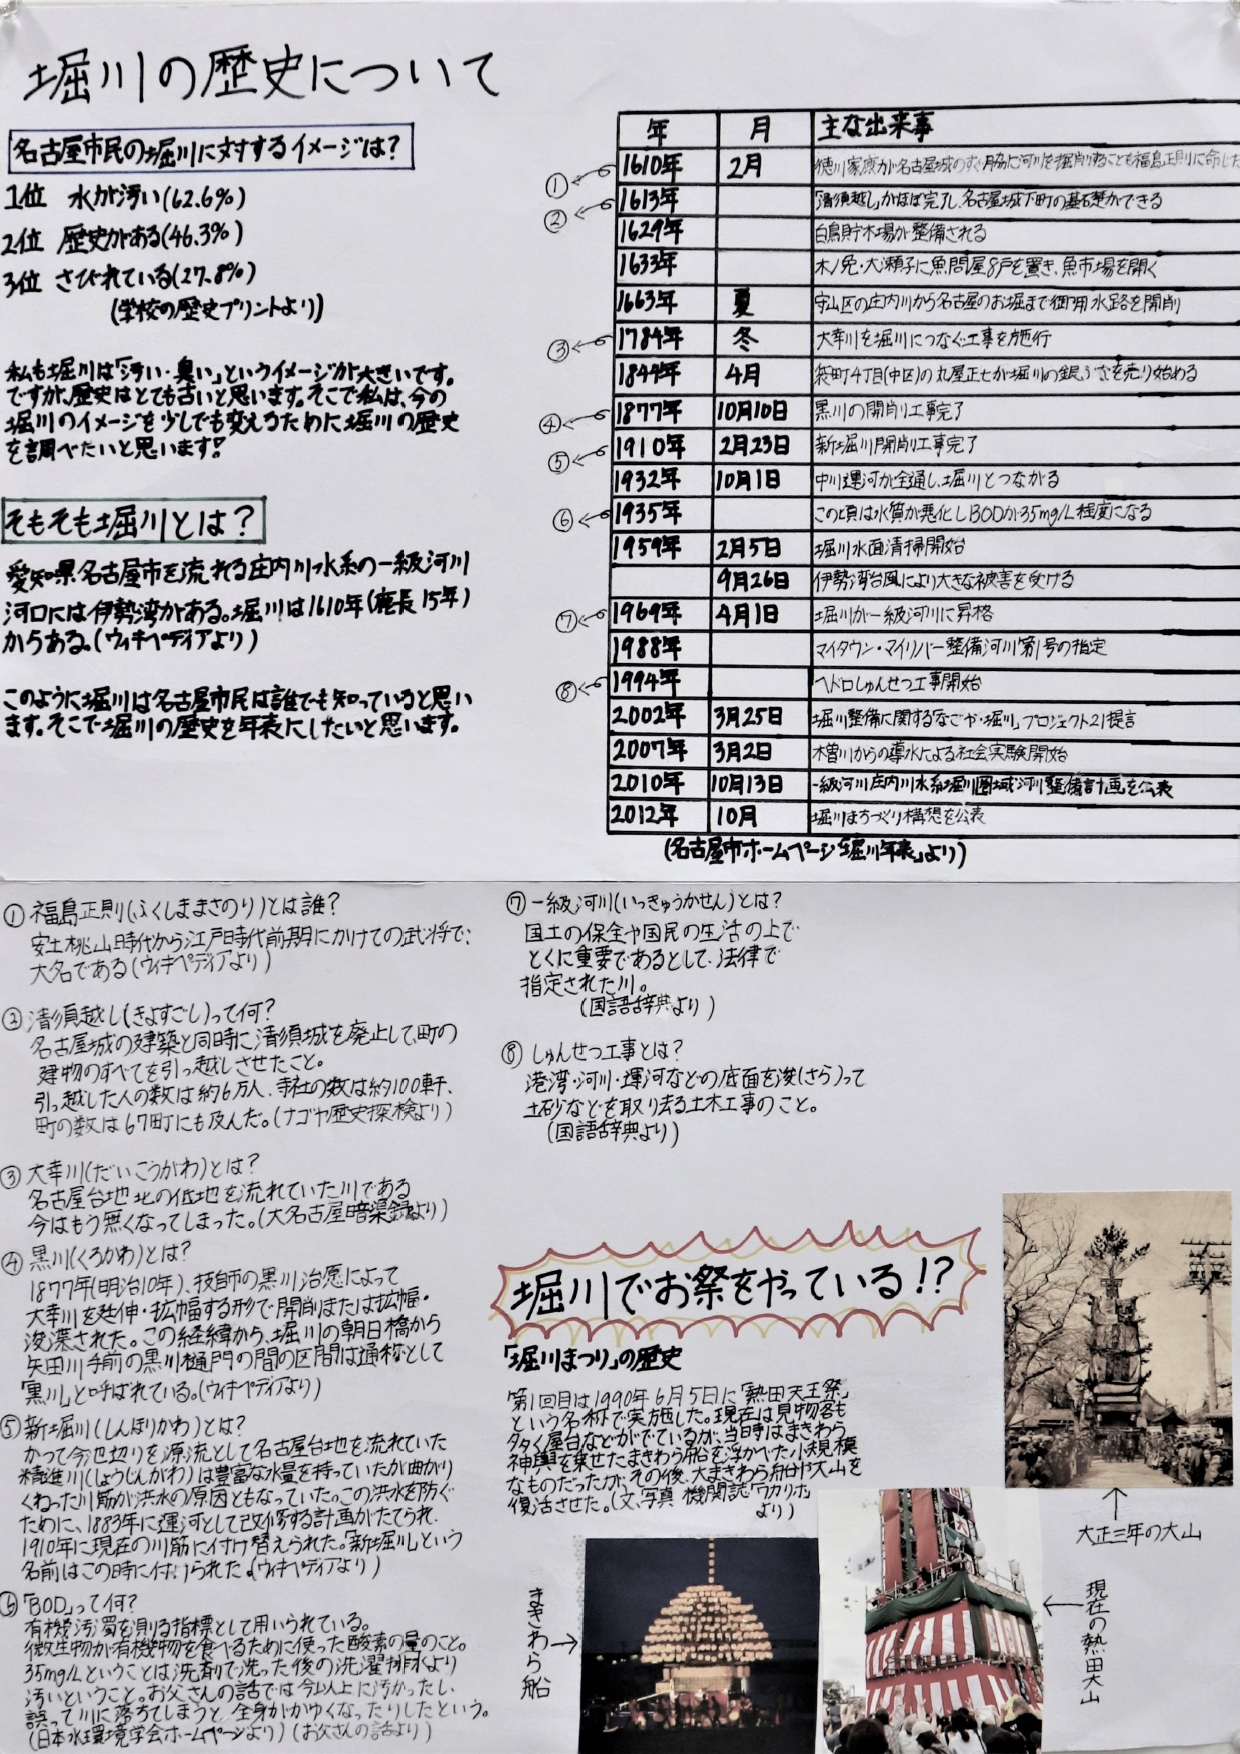 堀川の歴史について
名古屋市民の堀川に対するイメージは?
1位 水が汚い(62.6%)
2位 歴史がある(46.3%)
3位 さびれている(27.8%)
(学校の歴史プリントより)
私も堀川は「汚い・臭い」というイメージが大きいです。
ですが、歴史はとても古いと思います。そこで私は、今の
堀川のイメージを少しでも変えるために堀川の歴史
を調べたいと思います!
そもそも堀川とは?
愛知県名古屋市を流れる庄内川水系の一級河川
河口には伊勢湾がある。堀川は1610年(慶長15年)
からある。(ウィキペディアより)
このように堀川は名古屋市民は誰でも知っていると思い
ます。そこで堀川の歴史を年表にしたいと思います。
年 月 主な出来事
① 1610年 2月 徳川家康が名古屋城のすぐ脇に河川を掘削することを福島正則に命じた
② 1613年 「清須越し」がほぼ完了し、名古屋城下町の基礎ができる
1629年 白鳥貯木場が整備される
1633年 木ノ免・大瀬子に魚問屋8戸を置き、魚市場を開く
1663年 夏 守山区の庄内川から名古屋のお堀まで御用水路を開削
③ 1784年 冬 大幸川を堀川につなぐ工事を施行
1844年 4月 袋町4丁目(中区)の丸屋正七が堀川の銀ぶなを売り始める
④ 1877年 10月10日 黒川の開削工事完了
⑤ 1910年 2月23日 新堀川開削工事完了
1932年 10月1日 中川運河が全通し、堀川とつながる
⑥ 1935年 この頃は水質が悪化しBODが35mg/L程度になる
1959年 2月5日 堀川水面清掃開始
9月26日 伊勢湾台風により大きな被害を受ける
⑦ 1969年 4月1日 堀川が一級河川に昇格
1988年 マイタウン・マイリバー整備河川第1号の指定
⑧ 1994年 ヘドロしゅんせつ工事開始
2002年 3月25日 堀川整備に関する「なごや・堀川」プロジェクト21提言
2007年 3月2日 木曽川からの導水による社会実験開始
2010年 10月13日 一級河川庄内川水系堀川圏域河川整備計画を公表
2012年 10月 堀川まちづくり構想を公表
(名古屋市ホームページ「堀川年表」より)
① 福島正則(ふくしままさのり)とは誰?
安土桃山時代から江戸時代前期にかけての武将で、
大名である(ウィキペディアより)
② 清須越し(きよすごし)って何?
名古屋城の建築と同時に清須城を廃止して、町の
建物のすべてを引っ越しさせたこと。
引っ越した人の数は約6万人、寺社の数は約100軒、
町の数は67町にも及んだ。(ナゴヤ歴史探検より)
③ 大幸川(だいこうがわ)とは?
名古屋台地北の低地を流れていた川である
今はもう無くなってしまった。(大名古屋暗渠録より)
④ 黒川(くろかわ)とは?
1877年(明治10年)、技師の黒川治愿によって
大幸川を延伸・拡幅する形で開削または拡幅・
浚渫された。この経緯から、堀川の朝日橋から
矢田川手前の黒川樋門の間の区間は通称として
「黒川」と呼ばれている。(ウィキペディアより)
⑤ 新堀川(しんほりかわ)とは?
かつて今池辺りを源流として名古屋台地を流れていた
精進川(しょうじんがわ)は豊富な水量を持っていたが曲がり
くねった川筋が洪水の原因ともなっていた。この洪水を防ぐ
ために、1883年に運河として改修する計画がたてられ、
1910年に現在の川筋に付け替えられた。「新堀川」という
名前はこの時に付けられた。(ウィキペディアより)
⑥ 「BOD」って何?
有機汚濁を測る指標として用いられている。
微生物が有機物を食べるために使った酸素の量のこと。
35mg/Lということは洗剤で洗った後の洗濯排水より
汚いということ。お父さんの話では今以上に汚かったし、
誤って川に落ちてしまうと、全身がかゆくなったりしたという。
(日本水環境学会ホームページより)(お父さんの話より)
⑦ 一級河川(いっきゅうかせん)とは?
国土の保全や国民の生活の上で
とくに重要であるとして、法律で
指定された川。
(国語辞典より)
⑧ しゅんせつ工事とは?
港湾・河川・運河などの底面を浚(さら)って
土砂などを取り去る土木工事のこと。
(国語辞典より)
堀川でお祭をやっている!?
「堀川まつり」の歴史
第1回目は1990年6月5日に「熱田天王祭」
という名称で実施した。現在は見物客も
多く屋台などがでているが、当時はまきわら
神輿を乗せたまきわら船を浮かべた小規模
なものだったが、その後、大まきわら船や大山を
復活させた。(文、写真 機関誌「ワカリホ」
より)
大正三年の大山
まきわら船
現在の熱田大山